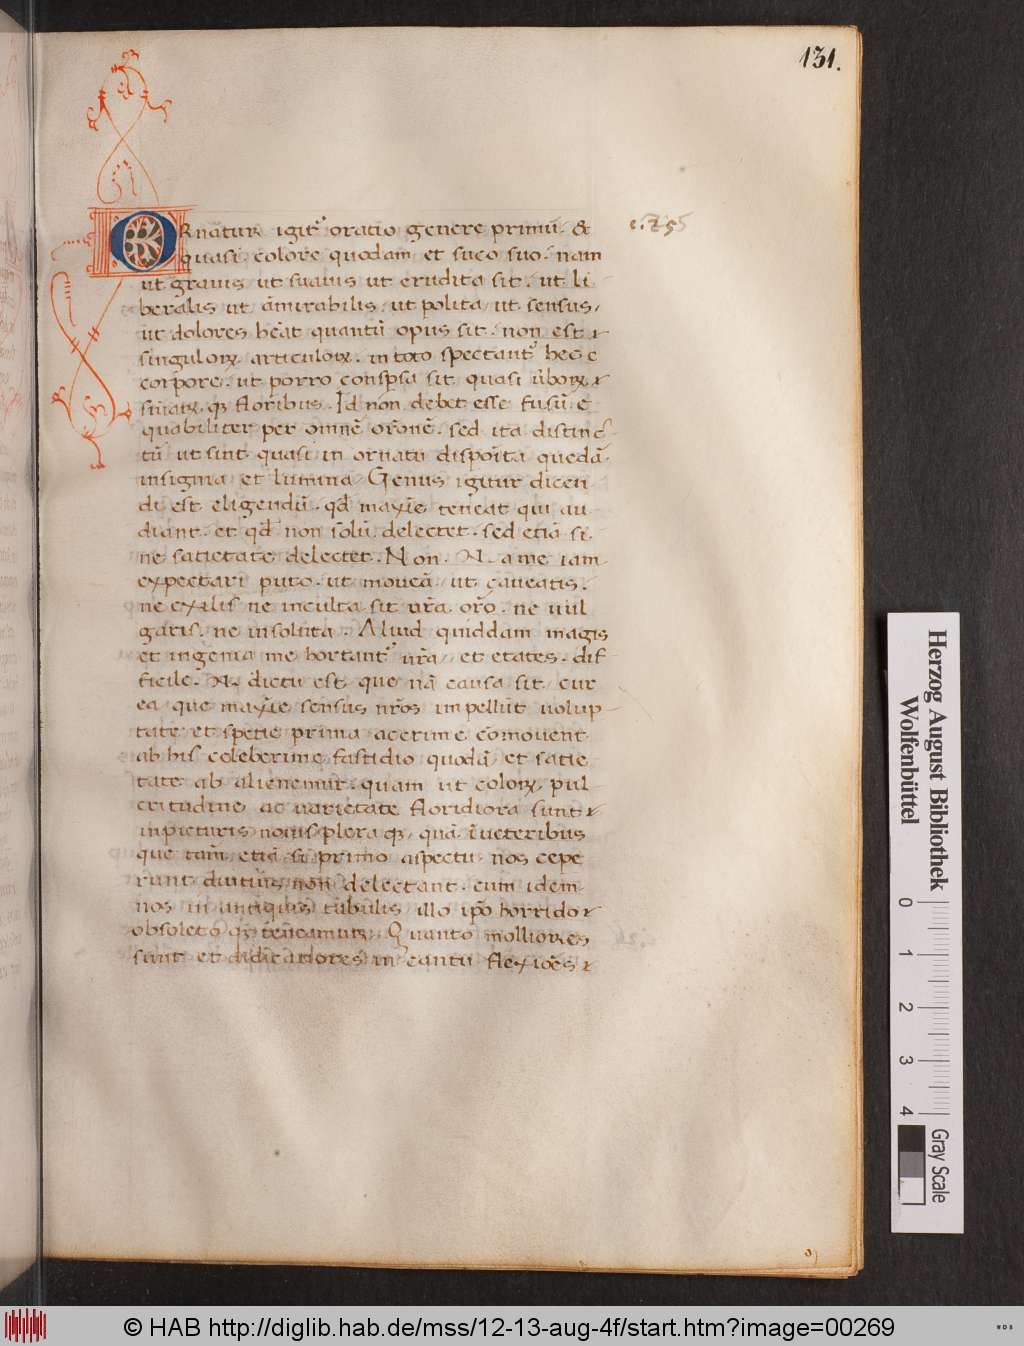 131.
ORnatur igit' oratio genere primū. &
quasi colore quodam et suco suo. nam
ut gravis, ut suavis ut erudita sit. ut li
beralis ut āmirabilis. ut polita, ut sensus,
ut dolores hēat quantū opus sit. non est
singuloꝝ articuloꝝ. in toto spectant' hec
corpore. ut porro consꝑsa sit quasi ūboꝝ
floribus. Id non debet esse fusū
quabiliter per omnē orōnē. sed ita distinc
tū ut sint quasi in ornatu quedā
insignia et lumina. Genus igitur dicen
di est eligendū. qd maxīe teneat qui au
diant. et qd non solū delectet. sed etiā si
ne satietate delectet. Non .N. a me iam
expectari puto. ut moueā ut caueatis.
ne exilis ne inculta sit ur̄a or̄o. ne uul
garis. ne insoluta. Aliud quiddam magis
et ingenia me hortant' ur̄a, et etates. dif
ficile .N. dictu est que nā causa sit cur
ea que maxīe sensus nr̄os impellūt uolup
tate et specie prima acerime cōmouent
ab his celeberime fastidio quodā et satie
tate ab alienemur. quam ut coloꝝ pul
critudine ac uarietate floridiora sunt
in picturis nouis pleraqꝫ quā ī ueteribus
que tam̄ etiā si primo aspectu nos cepe
runt diutius non delectant. cum idem
nos in antiquis tabulis illo ip̄o horrido
obsoletoqꝫ teneamur. Quanto molliores
sunt et in cantu flexiōēs
Herzog August Bibliothek
Wolfenbüttel
0 1 2 3 4
Gray Scale
© HAB http://diglib.hab.de/mss/12-13-aug-4f/start.htm?image=00269